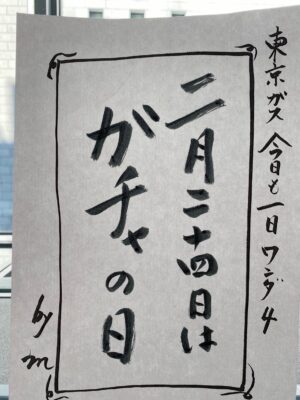 東京ガス 今日も一日ワンダ4
二月二十四日は
ガチャの日
by m